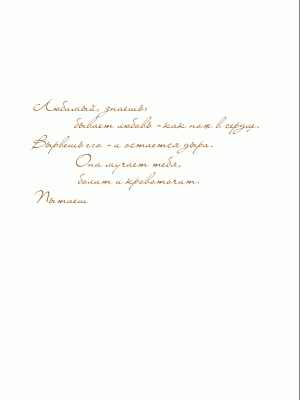 Любимый, знаешь:
бывает любовь - как нож в сердце.
Вырвешь его - и остается дыра.
Она мучает тебя,
болит и кровоточит.
Пытаеш